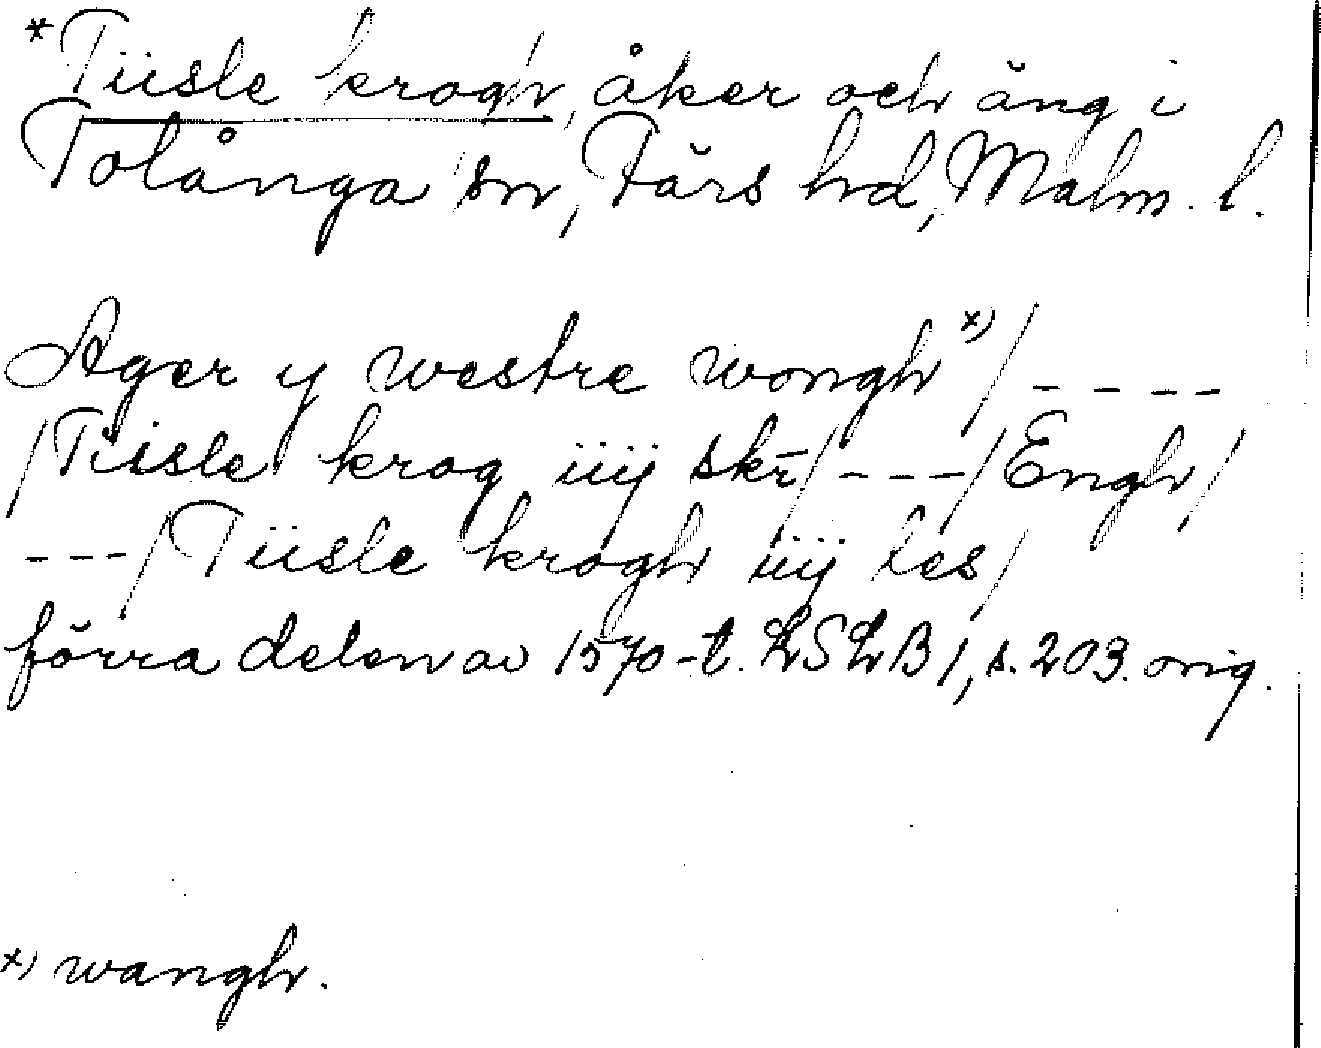 *Tiisle krogh, åker och äng i
Tolånga sn, Färs hd, Malm. l.
Ager y westre wongh x) / - - - -
/Tiisle krog iiij skr̄/ - - - /Engh/
- - - /Tiisle krogh iiij les/
förra delen av 1570-t. LSLB 1, s. 203. orig.
x) wangh.